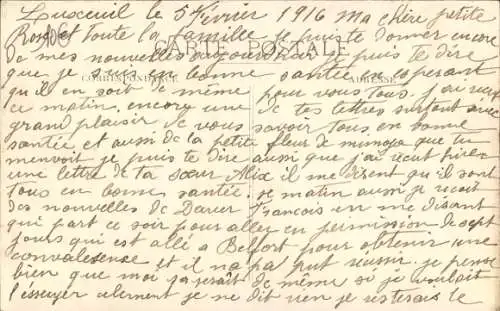 Luxeuil le 5 février 1916 Ma chère petite
Rose et toute la famille je puis te donner encore
CARTE POSTALE
de mes nouvelles aujourd'hui je puis te dire
que je suis en bonne santée en esperant
CORRESPONDANCE
ADRESSE
qu'il en soit de même pour vous tous. j'ai reçu
ce matin encore une de tes lettres surtout avec
grand plaisir de vous savoir tous en bonne
santée et aussi de la petite fleur de mimosa que tu
menvoit je puis te dire aussi que j'ai reçut hier
une lettre de ta sœur Alix il me disent qu'il sont
tous en bonne santée. se matin aussi je reçoit
des nouvelles de François en me disant
qui part ce soir pour aller en permission de sept
jours qui est allé a Belfort pour obtenir une
convalesense et il na pa put réussir. je pense
bien que moi ça serait de même si je voulait
l'éssayer seulement je ne dit rien je resterais le